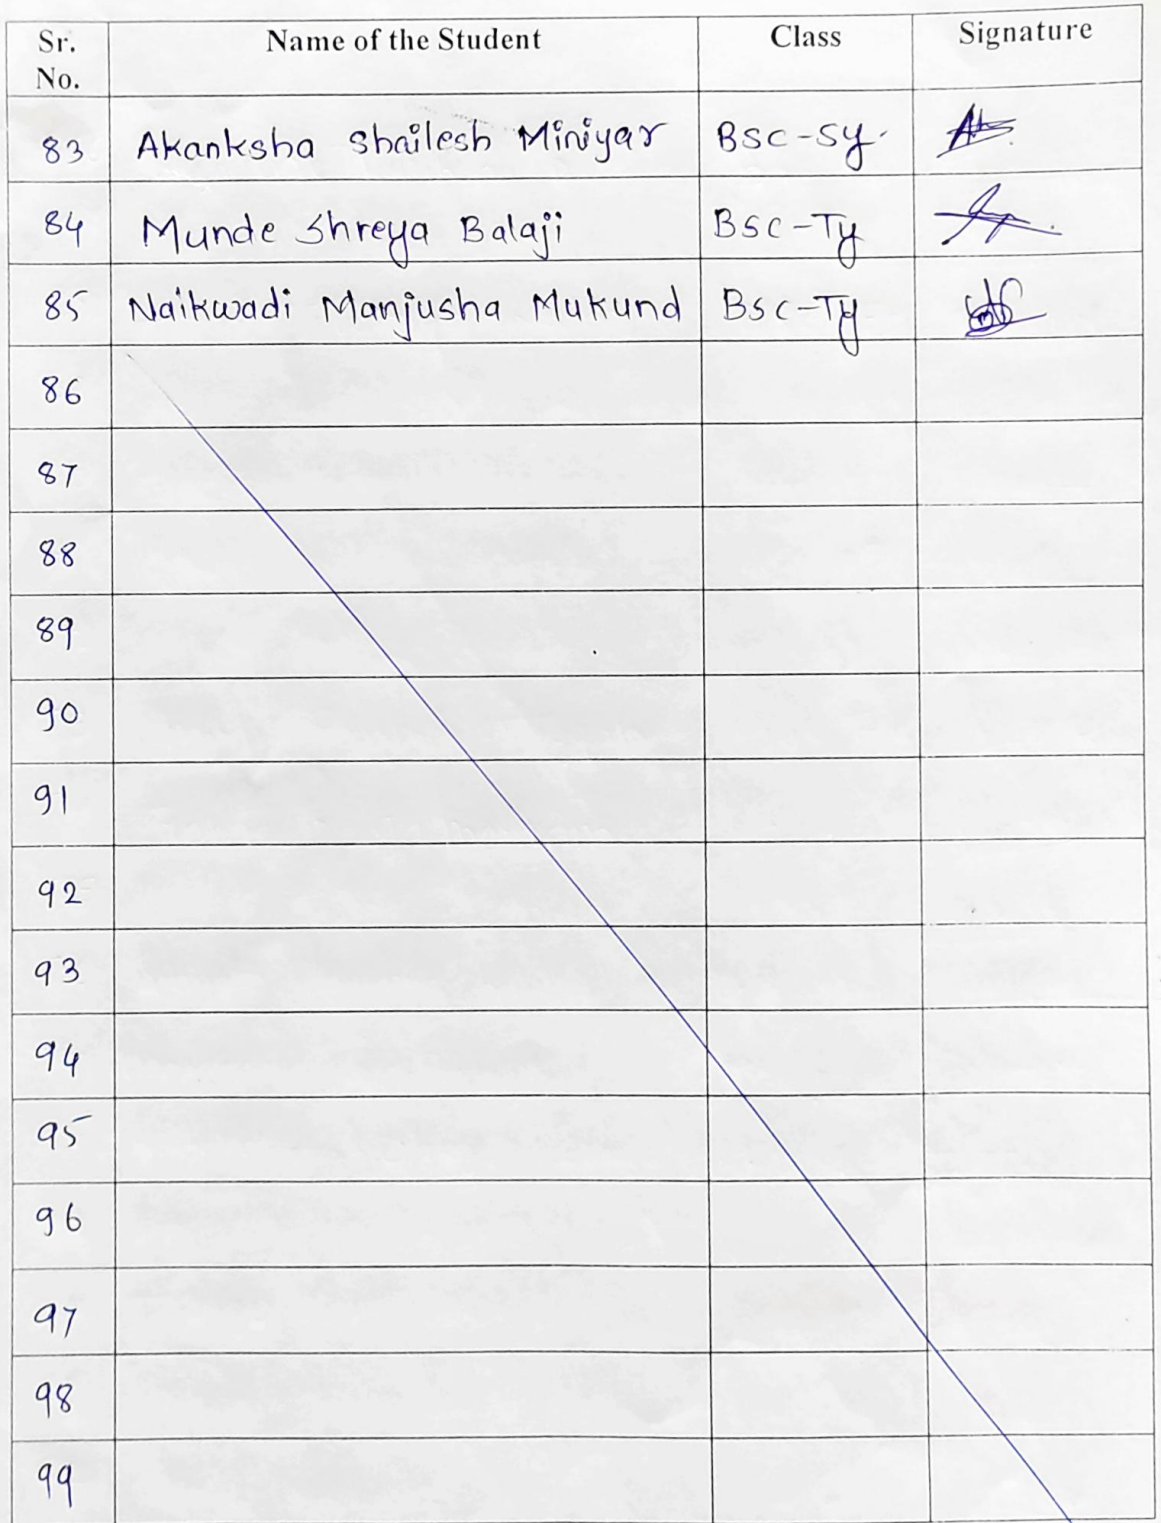 Sr. No. Name of the Student Class Signature
83 Akanksha Shailesh Miniyar BSC-Sy.
84 Munde Shreya Balaji BSC-Ty
85 Naikwadi Manjusha Mukund BSC-Ty
86
87
88
89
90
91
92
93
94
95
96
97
98
99